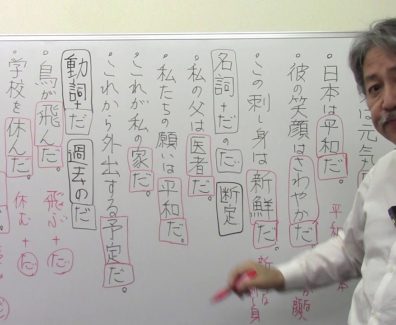 は元気
日本は平和だ。
平和
彼の笑顔はさわやかだ
顔
この刺し身は新鮮だ。
新
身
名詞+だのだ 断定
私の父は医者だ。
私たちの願いは平和だ。
これが私の家だ。
これから外出する予定だ。
動詞+だ 過去のだ
鳥が飛んだ。 飛ぶ+だ
学校を休んだ。 休む+だ